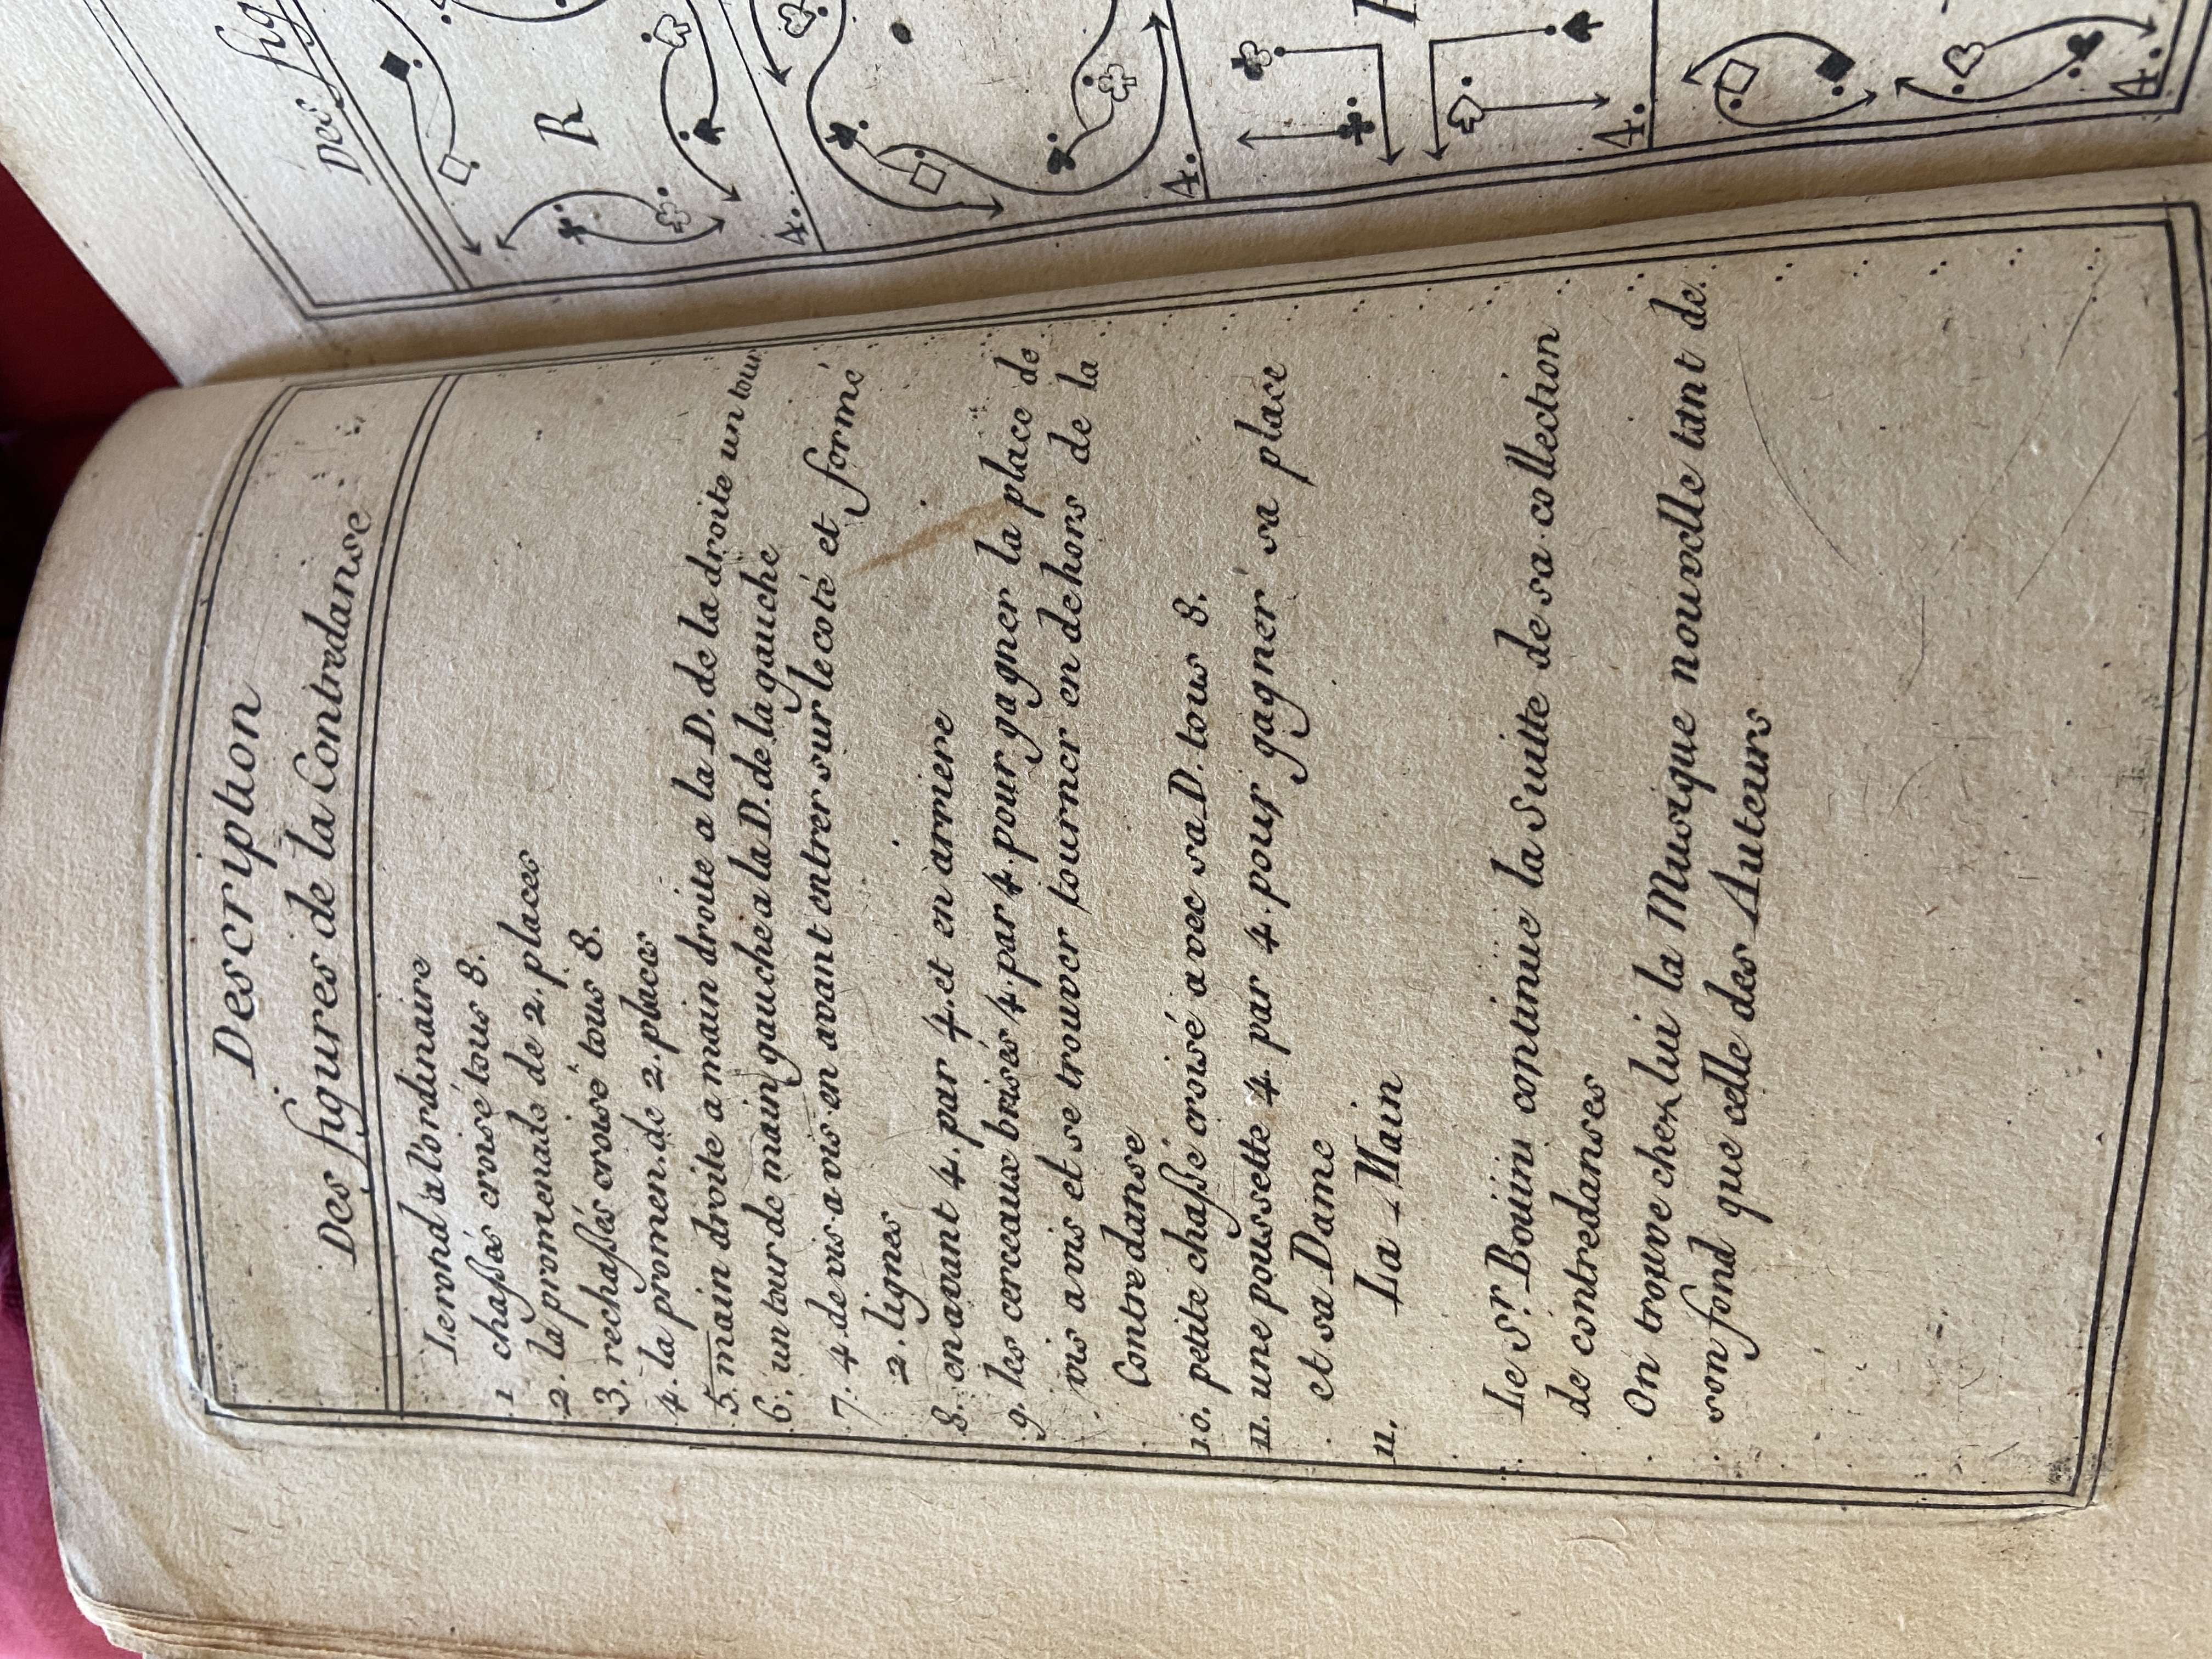 Description
Des figures de la Contredanse
Le rond a l'ordinaire
1 chassés croisé tous 8.
2. la promenade de 2. places
3. rechassés croisé tous 8.
4. la promen. de 2. places
5. main droite a main droite a la D. de la droite un tour
6. un tour de main gauche a la D. de la gauche
7. 4 de vis a vis en avant entrer sur le coté et formé
2. lignes
8. en avant 4. par 4. et en arriere
9. les cerceaux brisés 4. par 4. pour gagner la place de
vis a vis et se trouver tourner en dehors de la
Contredanse
10. petite chasse croisé avec sa D. tous 8.
11. une poussette 4. par 4. pour gagner sa place
et sa Dame
11. La Main
Le Sr. Bouin continue la Suitte de sa collection
de contredanses
On trouve chez lui la Musique nouvelle tant de
son fond que celle des Auteurs
Des fig
R
4.
4.
4.
4.